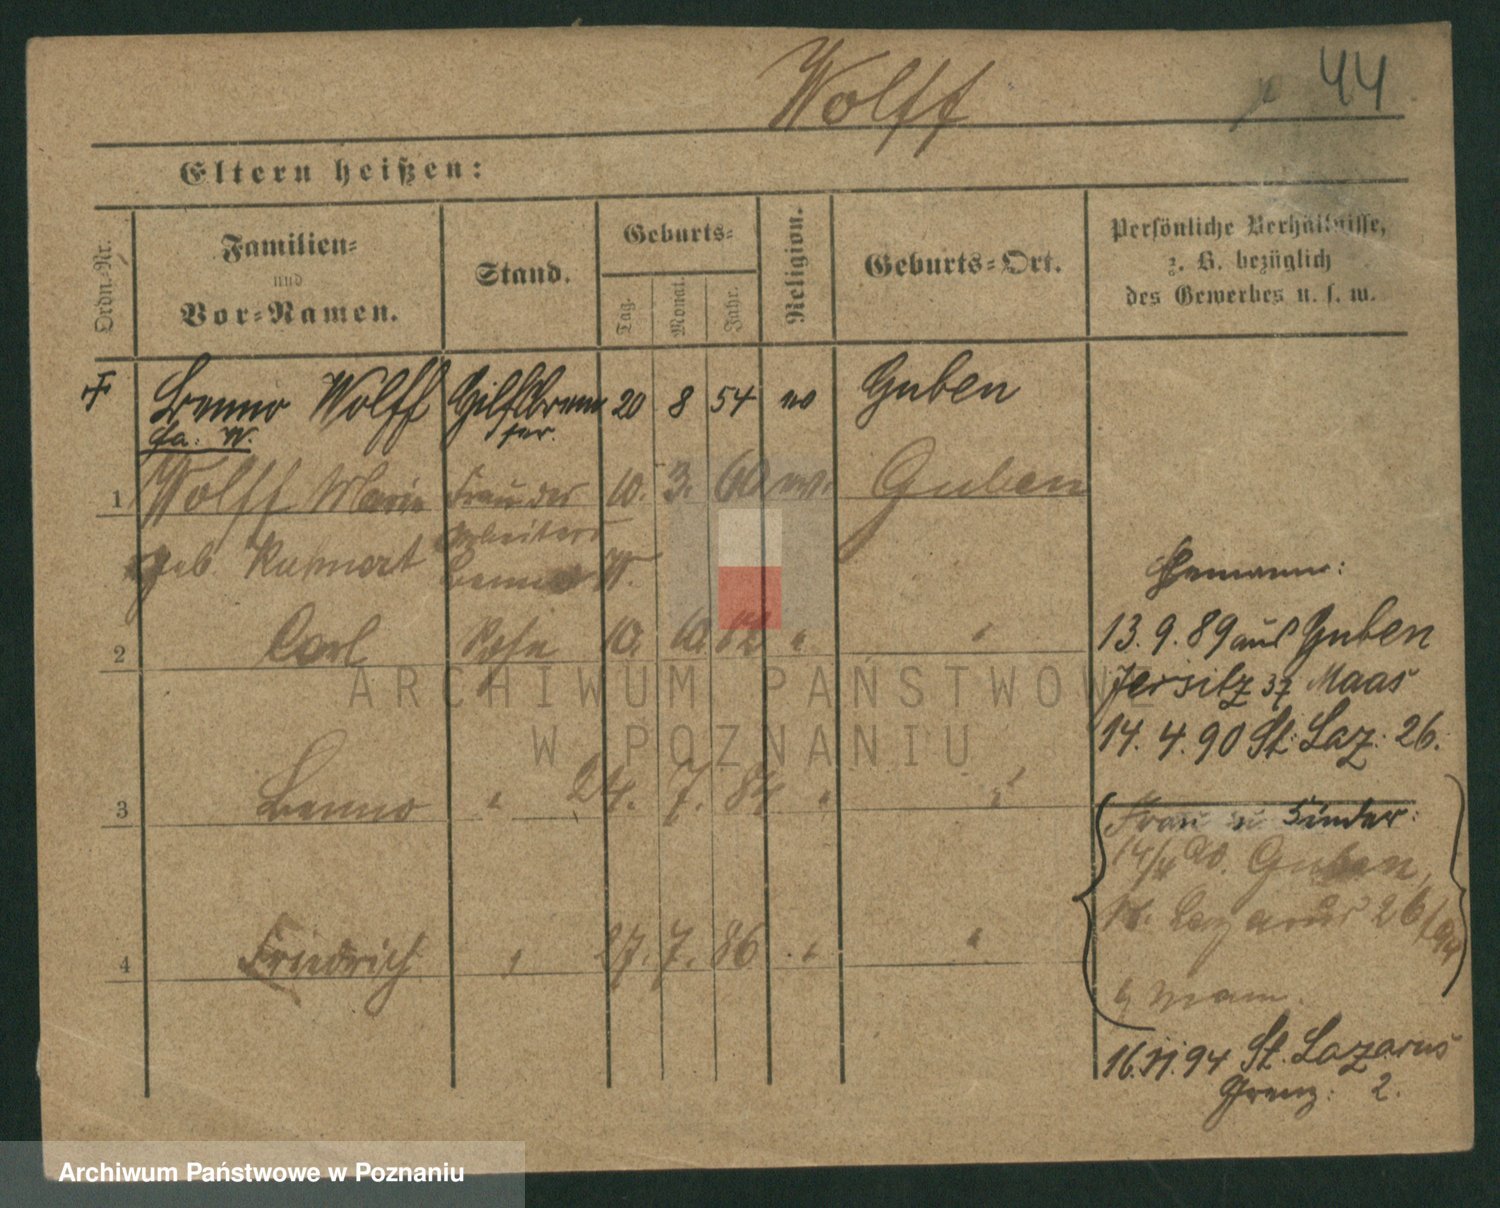 Wolff
44
Eltern heißen:
Ordn.-Nr.
Familien-
und
Vor-Namen.
Stand.
Geburts-
Tag.
Monat.
Jahr.
Religion.
Geburts-Ort.
Persönliche Verhältnisse,
z. B. bezüglich
des Gewerbes u. s. w.
Benno Wolff Hilfsbrem 20 8 54 ev Guben
ser.
1 Wolff Marie Frau des 10. 3. 60 ev. Guben
geb Arbeiters
Benno W.
2 Carl Sohn 10. 10. 82 "
3 Benno " 24. 7. 84 " "
4 Friedrich " 27. 7. 86 " "
Ehemann:
13. 9. 89 aus Guben
Jersitz 37 Maas
14. 4. 90 St. Laz. 26.
Frau u Kinder:
14/4 90. Guben,
St. Lazarus 26
z Mann.
16.11.94 St. Lazarus
Grenz: 2.
ARCHIWUM PAŃSTWOWE
W POZNANIU
Archiwum Państwowe w Poznaniu